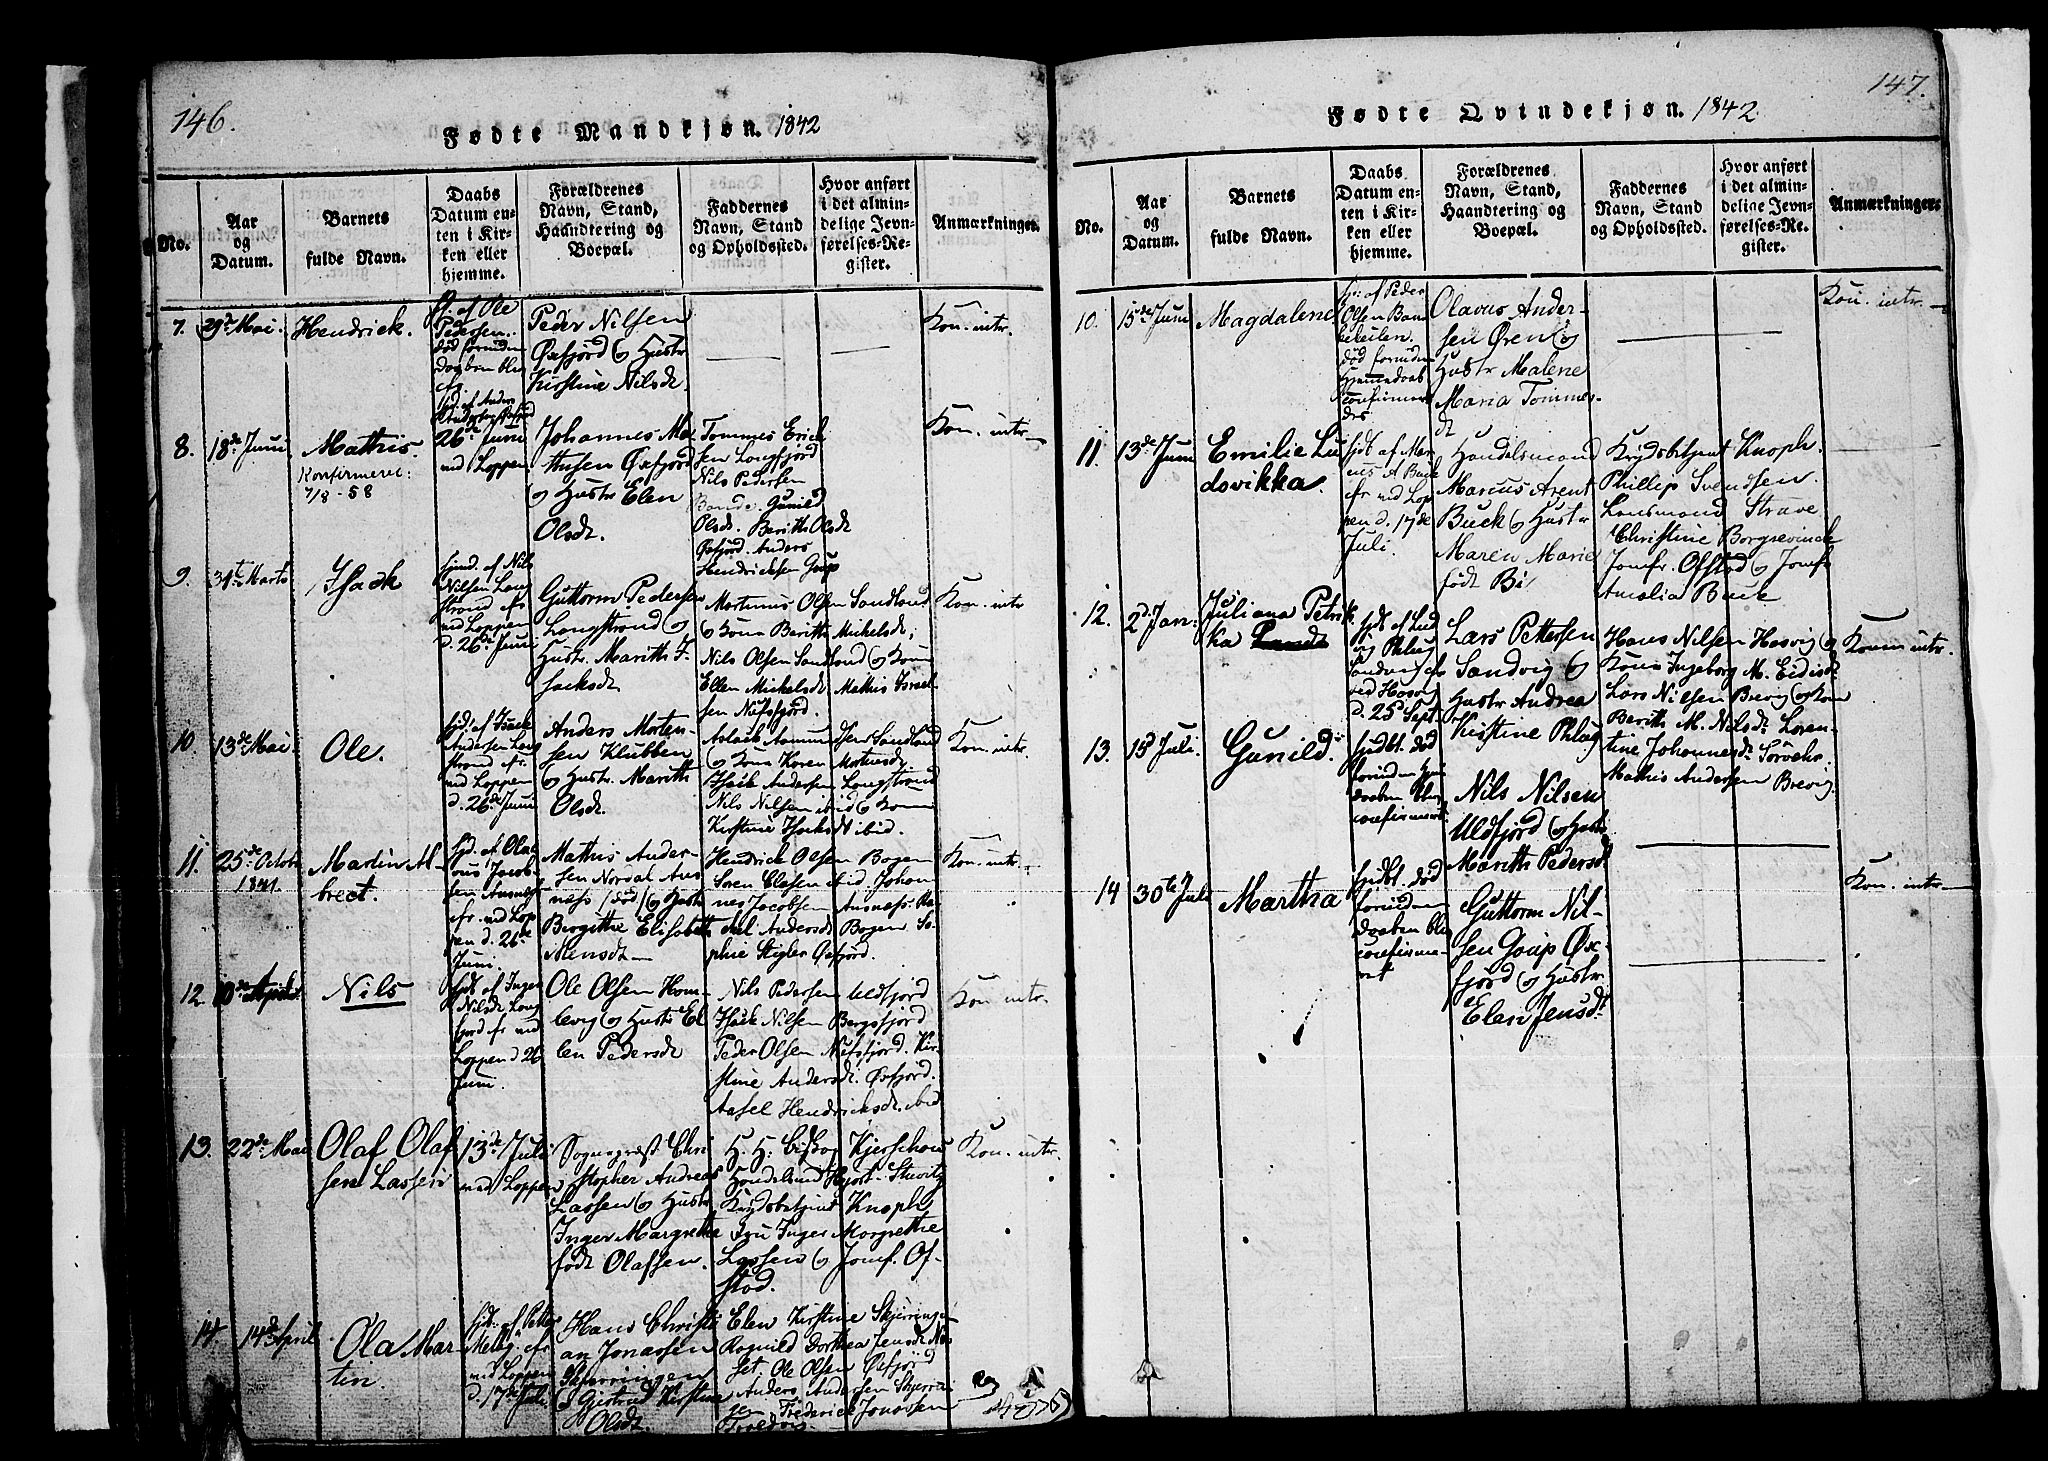 146.
Fødte Mandkjøn. 1842
No.
Aar
og
Datum.
Barnets
fulde Navn.
Daabs
Datum en-
ten i Kir-
ken eller
hjemme.
Forældrenes
Navn, Stand,
Haandtering og
Boepæl.
Faddernes
Navn, Stand
og Opholdssted.
Hvor anført
i det almin-
delige Jevn-
førelses-Re-
gister.
Anmærkninger.
7.
29de Mai.
Hendrick.
Hj. af Ole
Pedersen.
død forinden
daaben blev
cfr.
Peder Nilsen
Øxfjord og Hustr
Kirstine Nilsdt.
Kon. intr.
8.
18de Juni
Mathis.
Konfirmeret:
7/8-58
26de Juni
ved Loppen
Johannes Ma
thisen Øxfjord
og Hustr Elen
Olsdt.
Tommes Erick
sen Langfjord
Nils Pedersen
Gunild
Olsdt. Berith Olsdt
Øxfjord. Anders
Hendricksen Goup
Kon. intr.
9.
31te Marts
Isack
hjmd. af Nils
Nilsen Lang
strand cfr
ved Loppen
d. 26de Juni
Guttorm Pedersen
Langstrand og
Hustr. Marith I-
sacksdt
Mortinus Olsen Sandland
og Kona Berith Mickelsdt,
Nils Olsen Sandland og Kona
Ellen Mickelsdt Mathis Israel-
sen Nufsfjord.
Kon. intr
10.
13de Mai
Ole.
hjd. af Isack
Andersen Lang
strand cfr.
ved Loppen
d. 26de Juni
Anders Morten-
sen Klubben
og Hustr. Marith
Olsdt.
Aslack Amundsen Sandland
og Kona Karen Mortensdt
Isack Andersen Langstrand
Nils Nilsen ibid & Kona
Kirstine Isacksdt ibid.
Kon. intr.
11.
25de Octobr
1841.
Martin Al-
brect.
hjd. af Ola
vus Jacob-
sen Ausnæs
cfr. ved Lop
pen d. 26de
Juni.
Mathis Ander-
sen Nordal Aus
næss (død) og Hustr
Birgitte Elisabeth
Mensdt
Hendrick Olsen Bogen
Soren Clasen ibid, Johan
nes Jacobsen Ausnæss. Ra-
chel Andersdt Bogen So-
phie Stigler Øxfjord.
Kon. intr.
12.
10de April
Nils
hjdt af Inger
Nilsdt Lang
fjord cfr ved
Loppen d 26
Juni.
Ole Olsen Kom-
og Hustr El
len Pedersdt
Nils Pedersen Uldfjord
Isack Nilsen Bergsfjord
Peder Olsen Nufsfjord. Kir-
stine Andersdt. Øxfjord.
Aasel Hendricksdt. ibid
Kon intr.
13.
22de Mai
Olaf Olaf
sen Lassen
13de Juli
ved Loppen
Sognepræst Chri
stopher Andreas
Lassen og Hustr
Inger Margrethe
født Olafsen.
H. H. Biskop Kjerschou
Handelsmd Hjort.
Krydsbetjent Knoph
Fru Inger Margrethe
Lassen og Jomf. Of-
stad.
Kon. intr.
14
14de April
Ola Mar-
tin.
hjd. af Petter
cfr
ved Loppen
d. 17de Juli
Hans Christi
an Jonassen
Skjerringen
& Gjertrud Kirstine
Olsdt.
Elen Kirstine Skjerringe
Ragnild Dorthea Jensdt
Ole Olsen Øxfjord
Anders Andersen Skjerrin
gen Frederick Jonassen
147.
Fødte Qvindekjøn. 1842
No.
Aar
og
Datum.
Barnets
fulde Navn.
Daabs
Datum en-
ten i Kir-
ken eller
hjemme.
Forældrenes
Navn, Stand,
Haandtering og
Boepæl.
Faddernes
Navn, Stand
og Opholdssted.
Hvor anført
i det almin-
delige Jevn-
førelses-Re-
gister.
Anmærkninger.
10.
15de Juni
Magdalene
hj: af Peder
Olsen
død forinden
Hjemmedaab
confirmer
des
Olavus Ander-
sen Øren og
Hustr Malene
Maria Tommes-
dt
Kon. intr.
11.
13de Juni
Emilie Lu
dovikka.
hjdt af Mar
cus A Buck
cfr ved Lop
pen d. 17de
Juli.
Handelsmand
Marcus Arent
Buck og Hustr
Maren Marie
født Bi
Krydsbetjent Knoph.
Phillip Svendsen.
Lensmand Struve
Christine Borgsevinck
Jomfr. Ofstad og Jomfr
Amalia Buck
12.
2d Jan:
Juliana Petrik
ka
hjdt af Lud
vig Phlug
Sandvig cfr
ved Hasvig
d. 25 Sept.
Lars Pettersen
Sandvig og
Hustr Andrea
Kirstine Phlug
Hans Nilsen Hasvig og
Kona Ingeborg M. Eidisdt
Lars Nilsen Brevig og Kona
Berith M. Nilsdt Loren-
tine Johannesdt Sörvær.
Mathis Andersen Brevig.
Konm intr.
13.
15d Juli.
Gunild.
hjdbt. død
forinden Hj
daaben blev
confirmert
Nils Nilsen
Uldfjord og Hustr
Marith Pedersdt
14
30te Juli
Martha
hjdbt. død
forinden
daaben blev
confirme-
ret
Guttorm Nil-
sen Goup Øx-
fjord og Hustr
Elen Jensdt
Kon. intr.